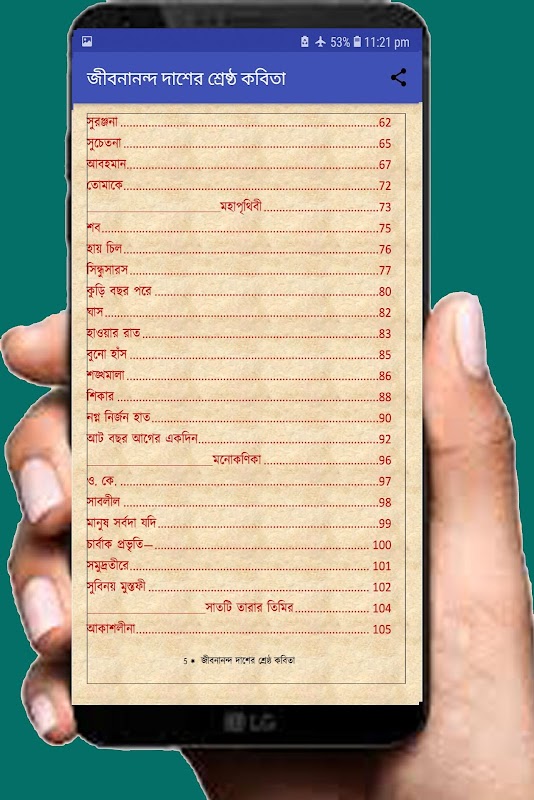 53% 11:21 pm
জীবনানন্দ দাশের শ্রেষ্ঠ কবিতা
সুরঞ্জনা 62
সুচেতনা 65
আবহমান 67
তোমাকে 72
মহাপৃথিবী 73
শব 75
হায় চিল 76
সিন্ধুসারস 77
কুড়ি বছর পরে 80
ঘাস 82
হাওয়ার রাত 83
বুনো হাঁস 85
শঙ্খমালা 86
শিকার 88
নগ্ন নির্জন হাত 90
আট বছর আগের একদিন 92
মনোকণিকা 96
ও. কে. 97
সাবলীল 98
মানুষ সর্বদা যদি 99
চার্বাক প্রভৃতি— 100
সমুদ্রতীরে 101
সুবিনয় মুস্তফী 102
সাতটি তারার তিমির 104
আকাশলীনা 105
5 ● জীবনানন্দ দাশের শ্রেষ্ঠ কবিতা
LG